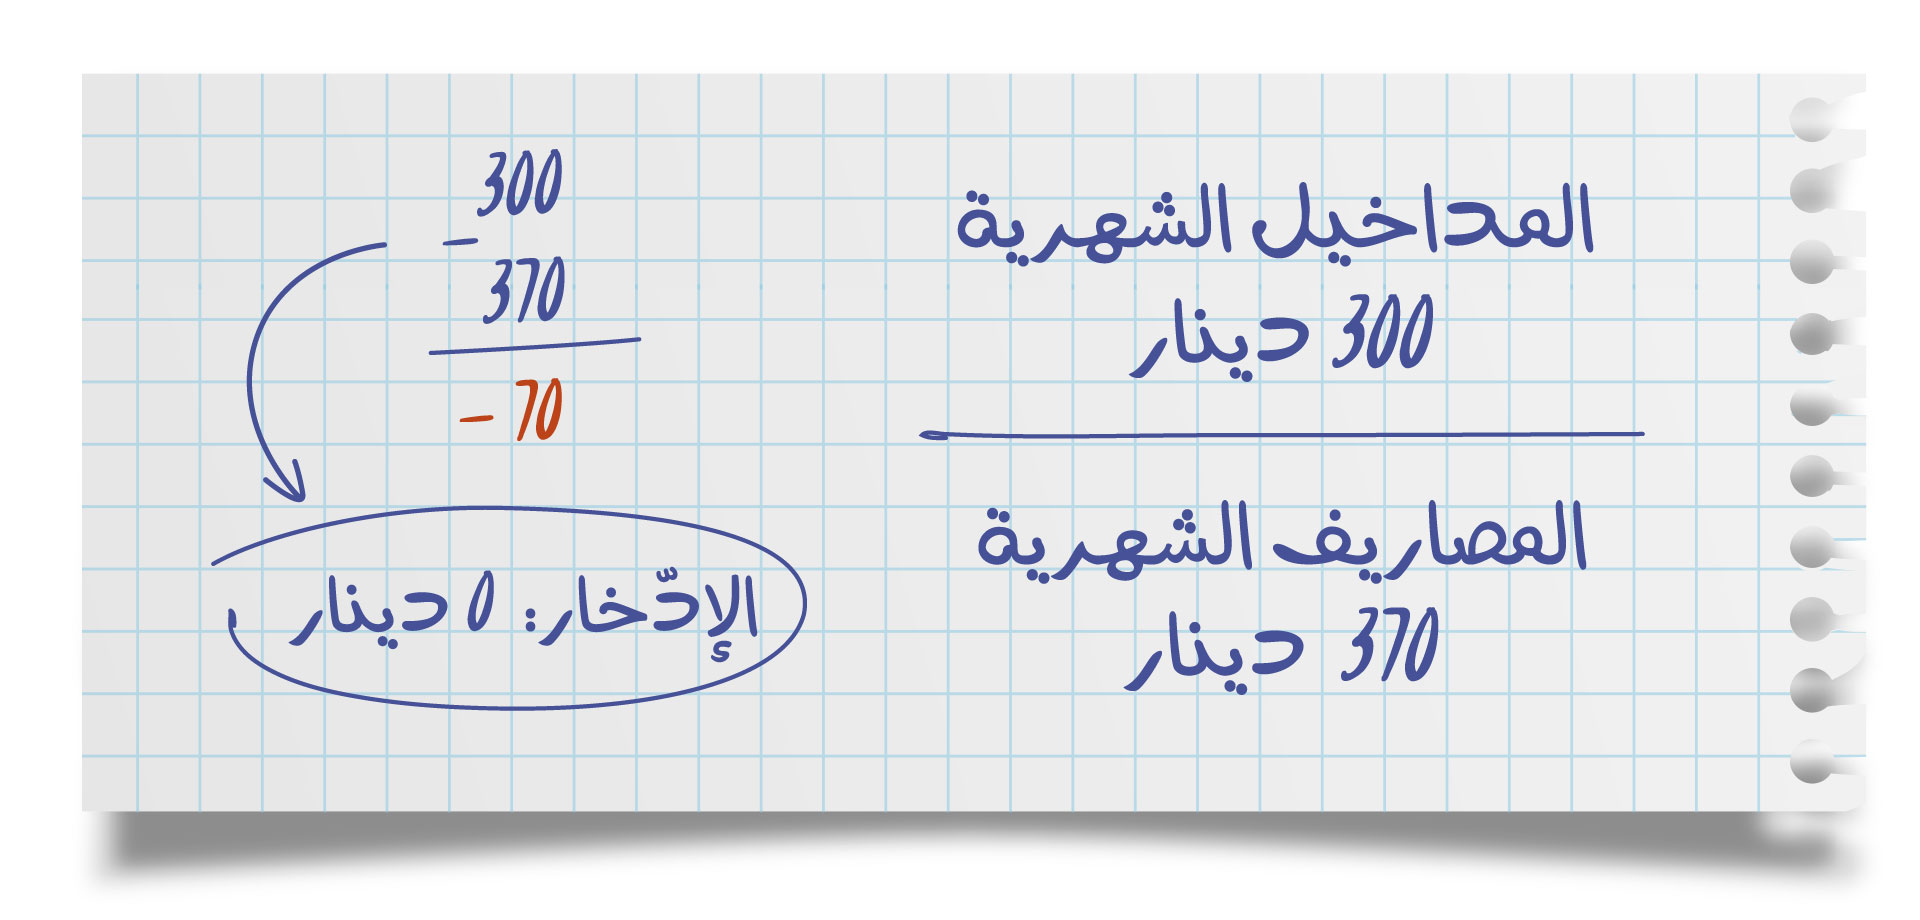 المداخيل الشهرية
300 دينار
المصاريف الشهرية
370 دينار
300
–
370
– 70
الإدّخار: 0 دينار